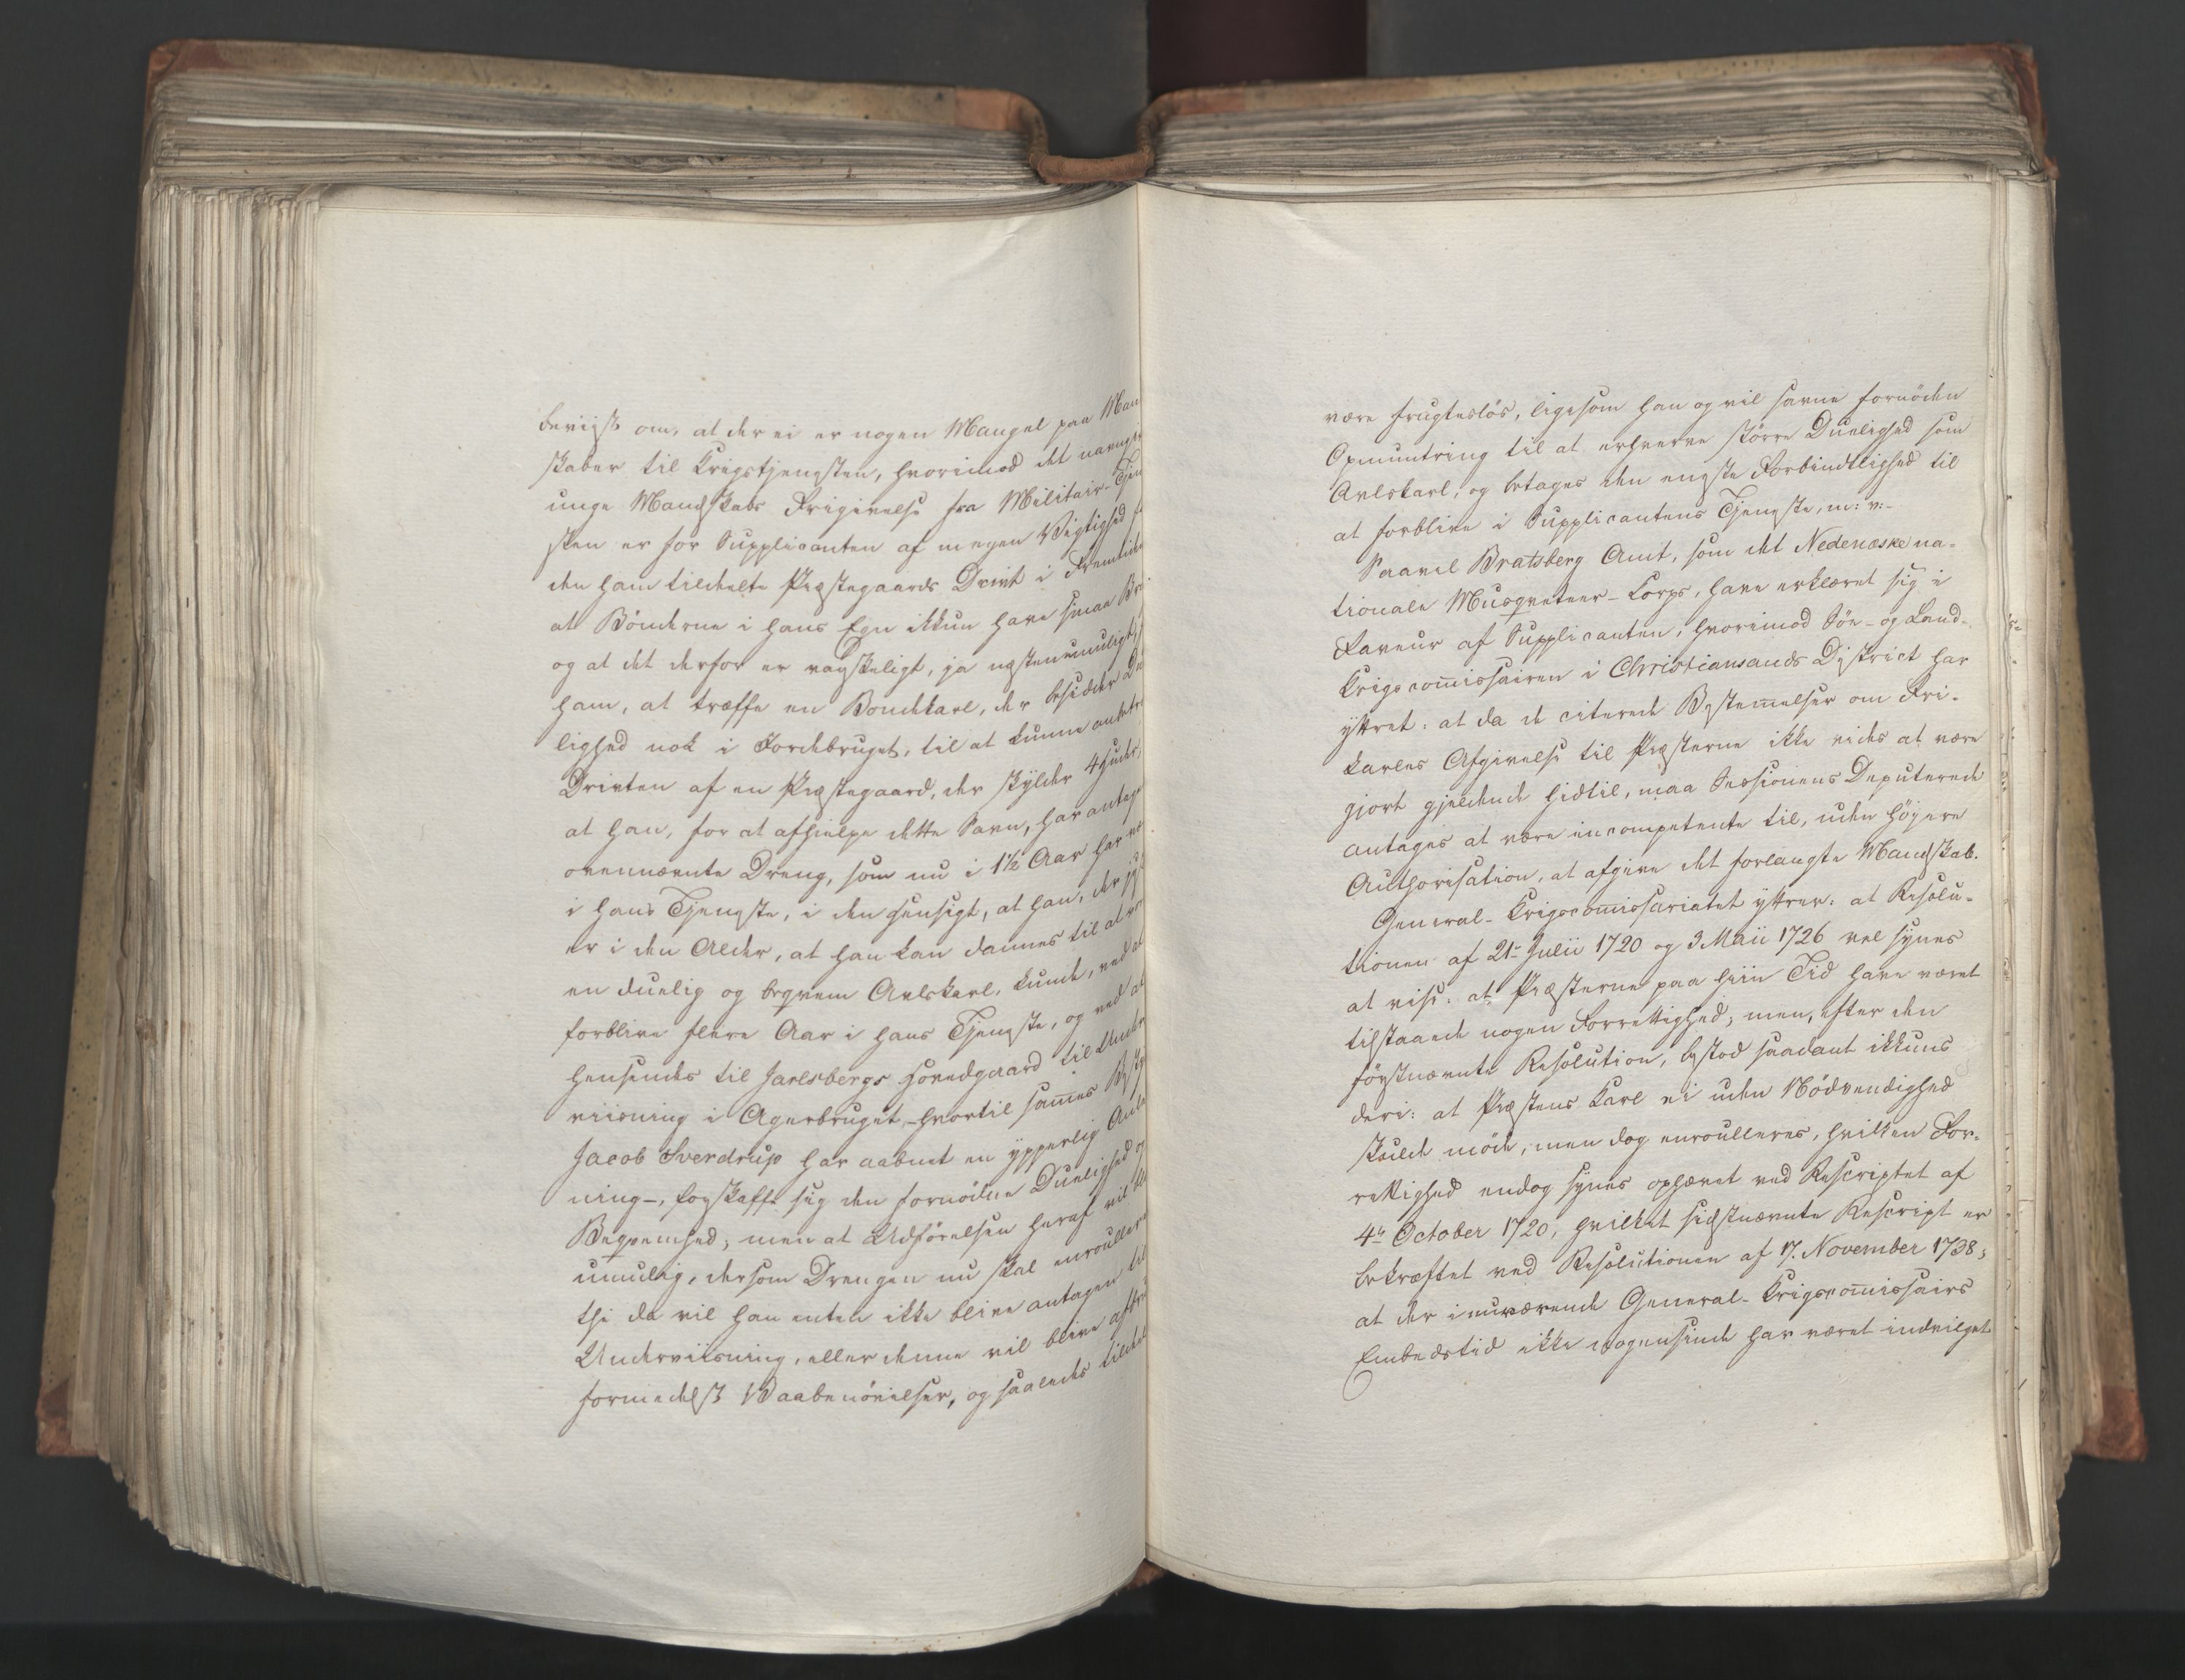 beviist om, at der ei er nogen Mangel paa Man
skaber til Krigstjenesten, hvorimod det
unge Mandskabs Frigivelse fra Militair-Tjen
sten er for Supplicanten af megen Vigtighed
den ham tildeelte Præstegaards Drivt i Fremtiden
at Bönderne i hans Egn ikkun have smaae
og at det derfor er vanskeligt, ja næsten umuligt
ham, at træffe en Bondekarl, der besidder Du
lighed nok i Jordebruget, til at kunne
Driften af en Præstegaard, der skylder 4 Huder,
at han, for at afhielpe dette Savn, har antaget
ovennævnte Dreng, som nu i 1½ Aar har
i hans Tjeneste, i den Hensigt, at han, der
er i den Alder, at han kan dannes til at
en duelig og beqvem Avlskarl, kunde, ved at
forblive flere Aar i hans Tjeneste, og ved at
hensendes til Jarlsbergs Hovedgaard til Under
viisning i Agerbruget, - hvortil sammes
Jacob Sverdrup har aabnet en ypperlig Anled
ning -, forskaffe sig den fornödne Duelighed og
Beqvemhed; men at Udförelsen heraf vil
umulig, dersom Drengen nu skal enroullere
thi da vil han enten ikke blive antagen til
Underviisning, eller denne vil blive
formedelst Vaabenövelser, og saaledes
være frugteslös, ligesom han og vil savne fornöden
Opmuntring til at erhverve större Duelighed som
Avlskarl, og betages den engste Forbindtlighed til
at forblive i Supplicantens Tjeneste, m: v:-
Saavel Bratsberg Amt, som det Nedenæske na-
tionale Musqveteer-Corps, have erklæret sig i
Faveur af Supplicanten; hvorimod Söe- og Land-
Krigscom̅issairen i Christiansands District har
yttret: at da de citerede Bestem̅elser om Fri-
karles Afgivelse til Præsterne ikke vides at være
gjort gjeldende hidtil, maa Sessionens Deputerede
antages at være incompetente til, uden höyere
Authorisation, at afgive det forlangte Mandskab.
General-Krigscom̅issariatet yttrer: at Resolu-
tionen af 21de Julii 1720 og 3 Maii 1726 vel synes
at vise: at Præsterne paa hiin Tid have været
tilstaaede nogen Forrettighed; men, efter den
förstnævnte Resolution, bestod saadant ikkuns
deri: at Præstens Karl ei uden Nödvendighed
skulde möde, men dog enroulleres, hvilken For-
rettighed endog synes ophævet ved Rescriptet af
4de October 1720, hvilket sidstnævnte Rescript er
bekræftet ved Resolutionen af 17. November 1738;
at der i nuværende General-Krigscom̅issairs
Embedstid ikke nogensinde har været indvilget